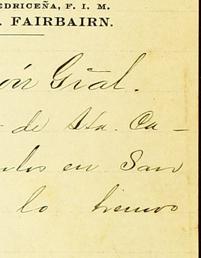 EDRICEÑA, F. I. M.
. FAIRBAIRN.
ón Gral.
de Sta. Ca-
en San
lo hemos